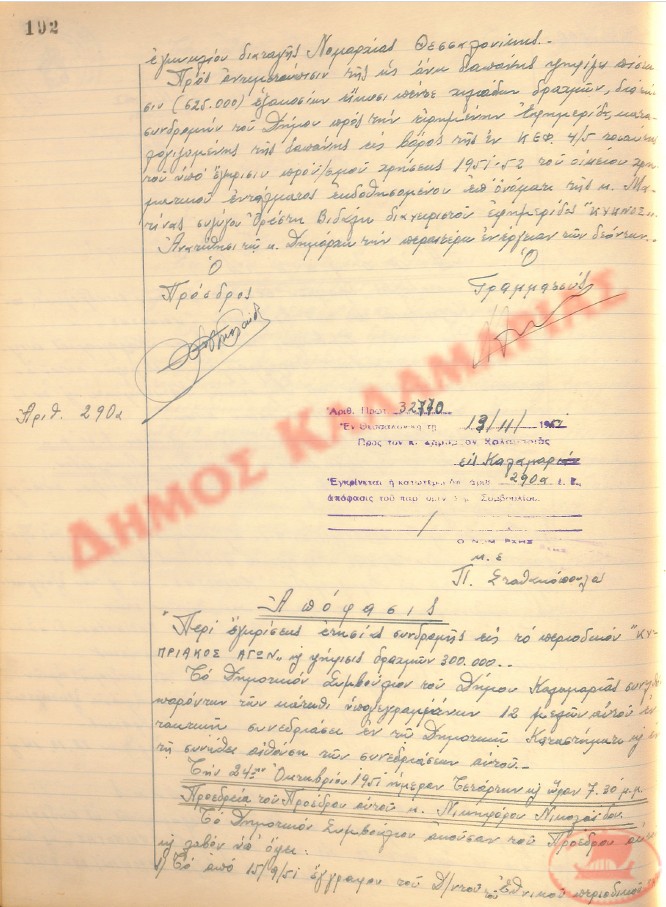 192
ἐγκυκλίου διαταγῆς Νομαρχίας Θεσσαλονίκης.-
Πρός ἀντιμετώπισιν τῆς ὡς ἄνω δαπάνης ψηφίζει πίστω
σιν (625.000) ἑξακοσίων εἴκοσι πέντε χιλιάδων δραχμῶν, διά
συνδρομήν τοῦ Δήμου πρός τήν εἰρημένην Ἐφημερίδα, κατα
λογιζομένης τῆς δαπάνης εἰς βάρος τῆς ἐν ΚΕΦ. 4/5
τοῦ ὑπό ἔγκρισιν προϋ/σμοῦ χρήσεως 1951-52 τοῦ οἰκείου χρη
ματικοῦ ἐντάλματος ἐκδοθησομένου ἐπ' ὀνόματι τῆς κ. Μα
τίνας συζύγου Ὀρέστη Βιδάλη διαχειριστοῦ ἐφημερίδος
Ἀνατίθησι τῷ κ. Δημάρχῳ τήν περαιτέρω ἐνέργειαν τῶν δεόντων.-
Ὁ Ὁ
Πρόεδρος Γραμματεύς
ΔΗΜΟΣ ΚΑΛΑΜΑΡΙΑΣ
Ἀριθ. 290α
Ἀριθ. Πρωτ. 32770
Ἐν Θεσσαλονίκῃ τῇ 13/11/195
Πρός τόν κ. Δήμαρχον Καλαμαριᾶς
εἰς Καλαμαριά
Ἐγκρίνεται ἡ κατωτέρω ὑπ' ἀριθ. 290α ἐ. ἔ.
ἀπόφασις τοῦ παρ' ὑμῖν Δημ. Συμβουλίου.
Ο ΝΟΜΑΡΧΗΣ
μ. ἐ
Π. Σταθακόπουλος
Ἀπόφασις
"Περί ἐγκρίσεως ἐτησίας συνδρομῆς εἰς τό περιοδικόν "ΚΥ
ΠΡΙΑΚΟΣ ΑΓΩΝ" κ ψήφισις δραχμῶν 300.000.-
Τό Δημοτικόν Συμβούλιον τοῦ Δήμου Καλαμαριᾶς συνελθόν
παρόντων τῶν κάτωθι ὑπογεγραμμένων 12 μελῶν αὐτοῦ ἐν
τακτικῇ συνεδριάσει ἐν τῷ Δημοτικῷ Καταστήματι κ ἐν
τῇ συνήθει αἰθούσῃ τῶν συνεδριάσεων αὐτοῦ.-
Τήν 24ην Ὀκτωβρίου 1951 ἡμέραν Τετάρτην κ ὥραν 7.30 μ.μ.
Προεδρείᾳ τοῦ Προέδρου αὐτοῦ κ. Νικηφόρου Νικολαΐδου.
Τό Δημοτικόν Συμβούλιον ἀκοῦσαν τοῦ Προέδρου αὐτοῦ
κ λαβόν ὑπ' ὄψει:
1) Τό ἀπό 15/9/51 ἔγγραφον τοῦ Δ/ντοῦ τοῦ Ἐθνικοῦ περιοδικοῦ